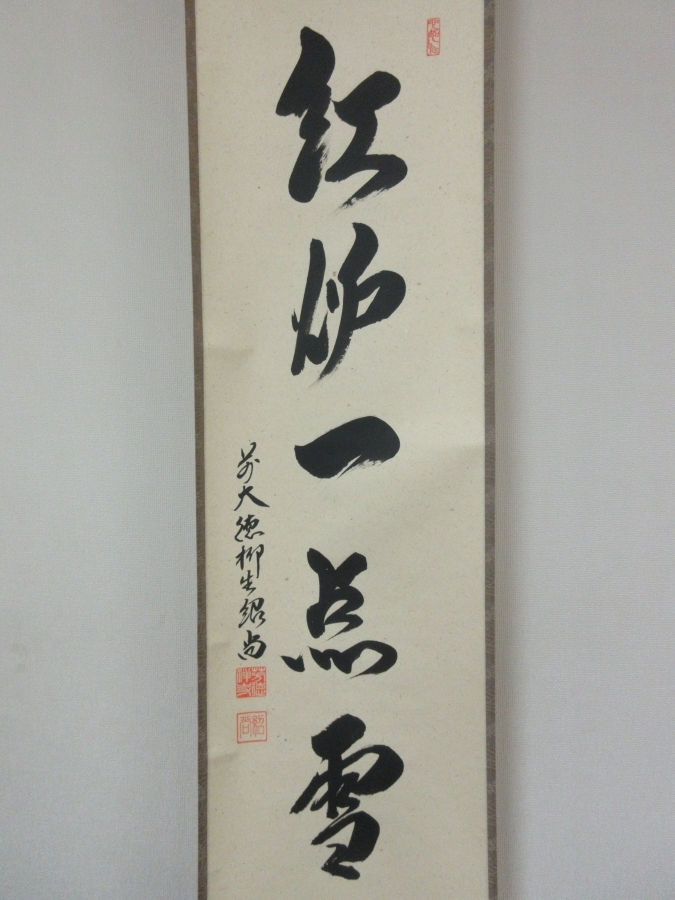 紅炉一点雪
前大徳柳生紹尚
紹尚